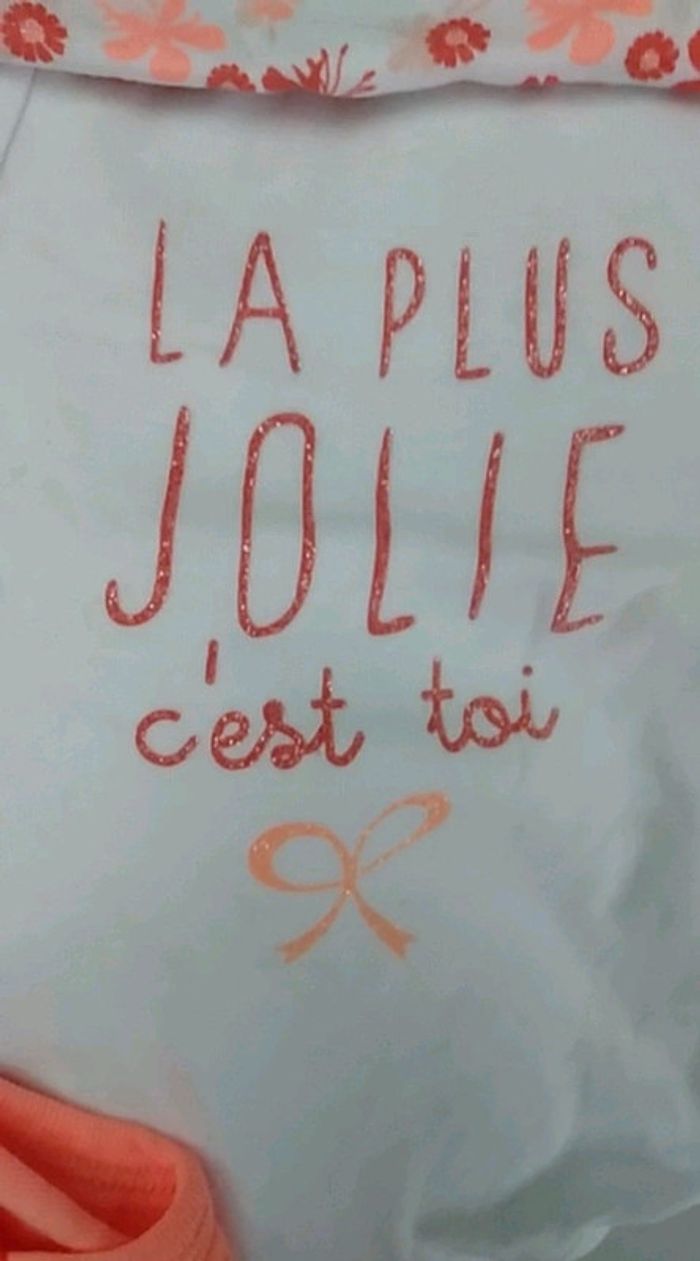 LA PLUS
JOLIE
c'est toi